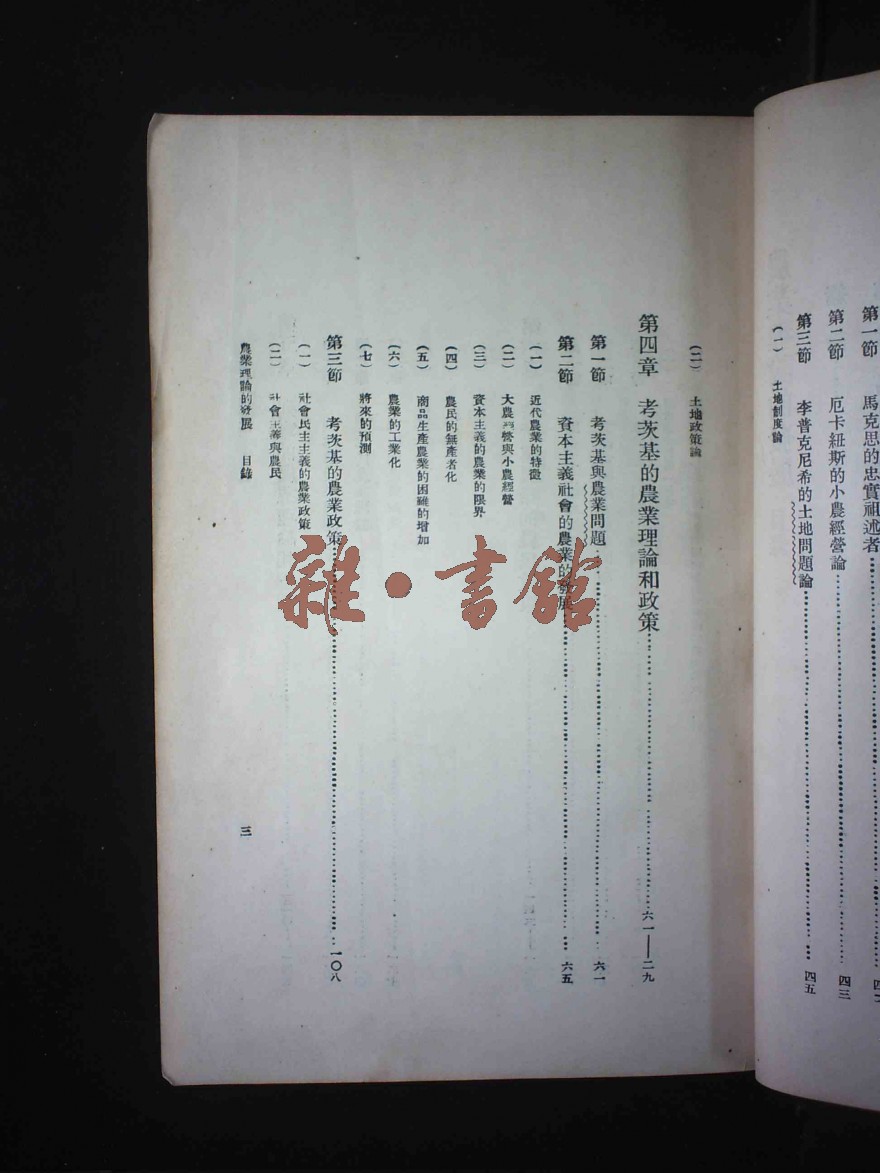 第一節　馬克思的忠實祖述者
第二節　厄卡紐斯的小農經營論……四三
第三節　李普克尼希的土地問題論……四五
（一）　土地制度論
（二）　土地政策論
第四章　考茨基的農業理論和政策……六一——二九
第一節　考茨基與農業問題……六一
第二節　資本主義社會的農業的發展……六五
（一）　近代農業的特徵
（二）　大農經營與小農經營
（三）　資本主義的農業的限界
（四）　農民的無產者化
（五）　商品生產農業的困難的增加
（六）　農業的工業化
（七）　將來的預測
第三節　考茨基的農業政策……一〇八
（一）　社會民主主義的農業政策
（二）　社會主義與農民
農業理論的發展　目錄
三
雜·書館